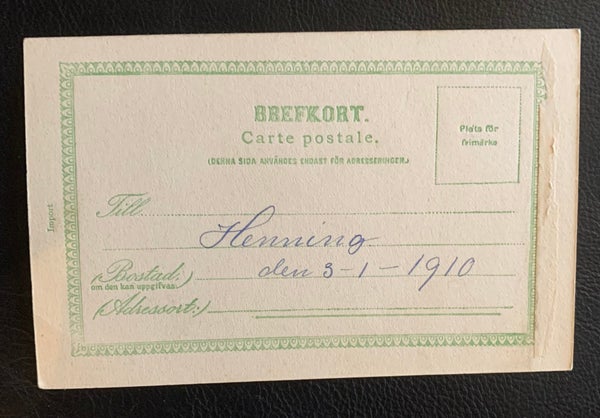 BREFKORT.
Carte postale.
(DENNA SIDA ANVÄNDES ENDAST FÖR ADRESSERINGEN.)
Plats för
frimärke
Import
Till
Henning
(Bostad:)
om den kan uppgifvas.
den 3-1-1910
(Adressort:)